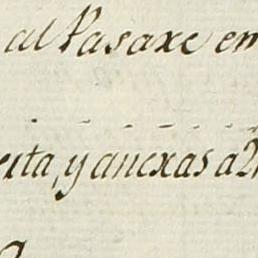 al Pasaxe en
eita, y anexas a 2